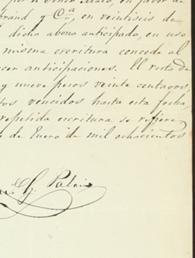 rand y Cª, en veintiseis de
dicho abono anticipado, en uso
misma escritura concede al
cer anticipaciones. El resto de
y nueve pesos veinte centavos,
tos vencidos hasta esta fecha,
repetida escritura se refiere
de Enero de mil ochocientos